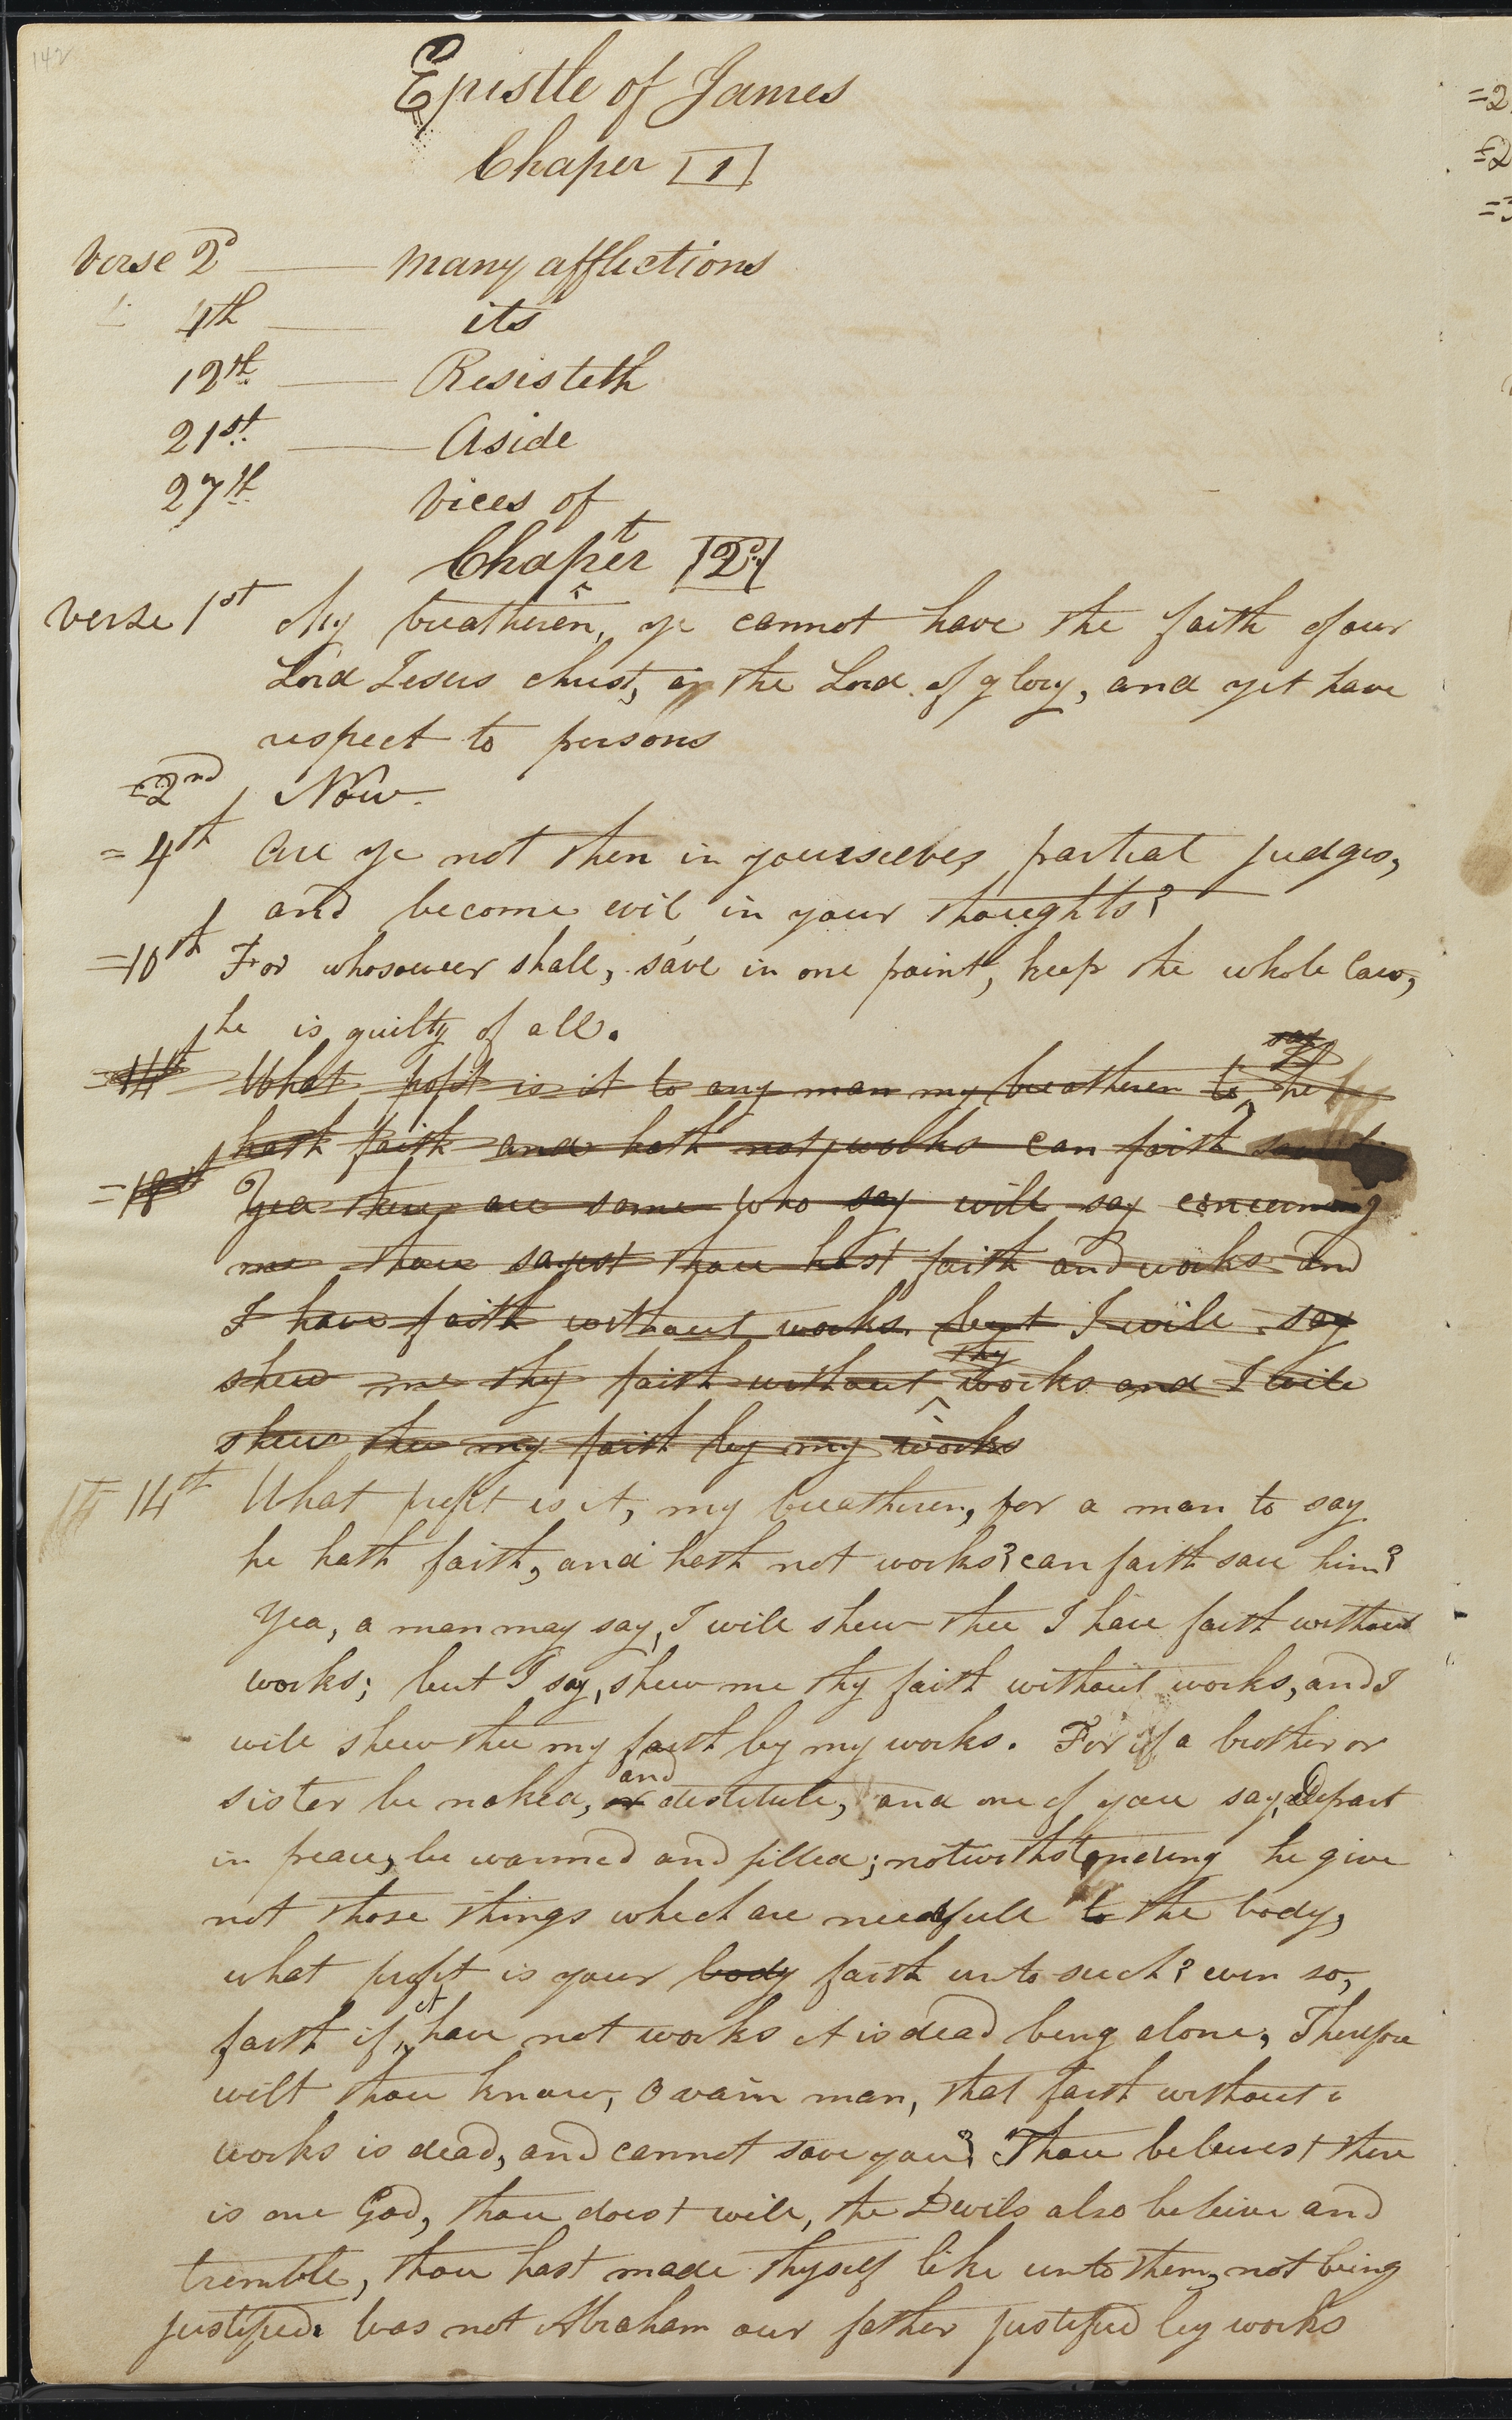 142
Epistle of James
Chaper 1
verse 2d many afflections
4th its
12th Resisteth
21st Aside
27th vices of
Chapter 2d
verse 1st My breatheren, ye cannot have the faith of our
Lord Jesus christ, the Lord of glory, and yet have
respect to persons
=2nd Now
=4th Are ye not then in yourseelves partial judges,
and become evil in your thoughts?
=10th For whosoever shall, save in one point, keep the whole law,
he is guilty of all.
say
=14th What profit is it to any man my breatheren to he
hath faith and hath not works can faith
=18 Yea there are some who say will say concerning
me thou sayest thou hast faith and works and
I have faith without works but I will say
thy
shew me thy faith without works and I will
shew thee my faith by my works
14 14th What profit is it, my breatheren, for a man to say
he hath faith, and hath not works? can faith save him?
Yea, a man may say, I will shew thee I have faith without
works; but I say, shew me thy faith without works, and I
will shew thee my faith by my works. For if a brother or
and
sister be naked, or destitute, and one of you say, Depart
in peace, be warmed and filled; notwithstanding he give
not those things which are needfull to the body,
what profit is your body faith unto such? even so,
it
faith if have not works it is dead being alone, Therefore
wilt thou know, O vain man, that faith without
works is dead, and cannot save you? Thou believest there
is one God, thou doest will, the Devils also beleive and
tremble, thou hast made thyself like unto them, not being
justified. Was not Abraham our father justified by works